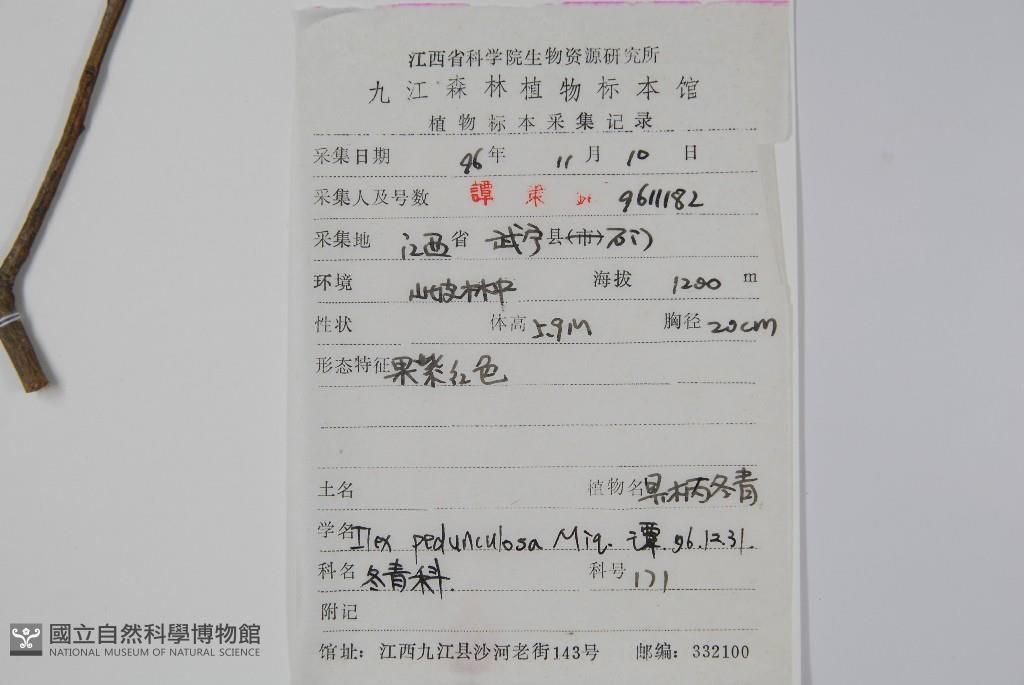 江西省科学院生物资源研究所
九江森林植物标本馆
植物标本采集记录
采集日期 96年 11月 10日
采集人及号数 譚 9611182
采集地 江西省 武宁县(市)石门
环境 山坡林中 海拔 1200 m
性状 体高 5.9M 胸径 20cm
形态特征 果紫红色
土名 植物名 具柄冬青
学名 Ilex pedunculosa Miq. 譚. 96.12.31.
科名 冬青科. 科号 171
附记
馆址：江西九江县沙河老街143号 邮编：332100
國立自然科學博物館
NATIONAL MUSEUM OF NATURAL SCIENCE